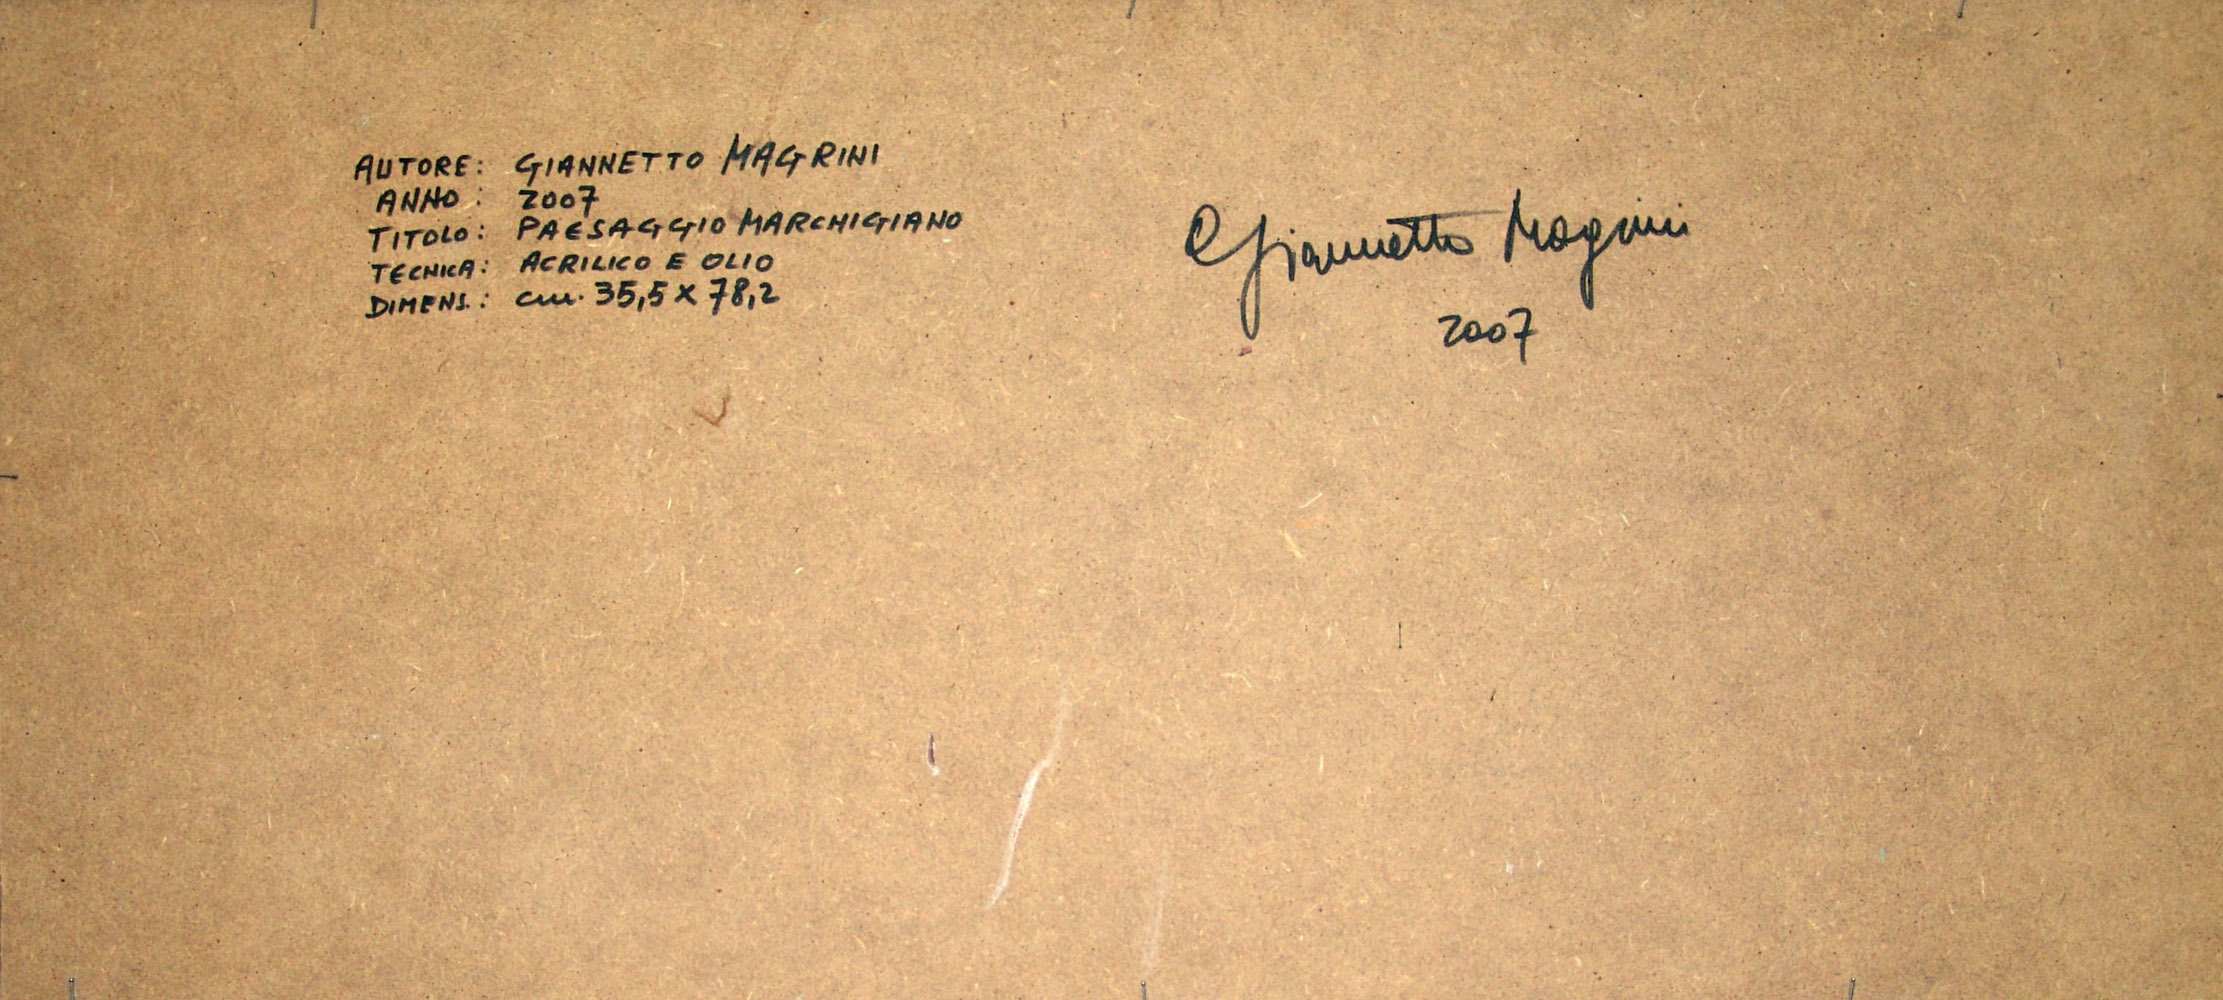 AUTORE: GIANNETTO MAGRINI
ANNO: 2007
TITOLO: PAESAGGIO MARCHIGIANO
TECNICA: ACRILICO E OLIO
DIMENS.: cm. 35,5 X 78,2
Giannetto Magrini
2007